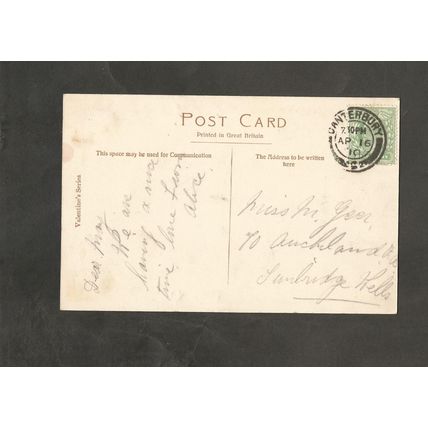 POST CARD
Printed in Great Britain
This space may be used for Communication
The Address to be written
here
Valentine's Series
CANTERBURY
7.10PM
AP 16
10
Dear May
We are
having a nice
time love from
Alice.
Miss M. Geer
70 Auckland
Tunbridge Wells